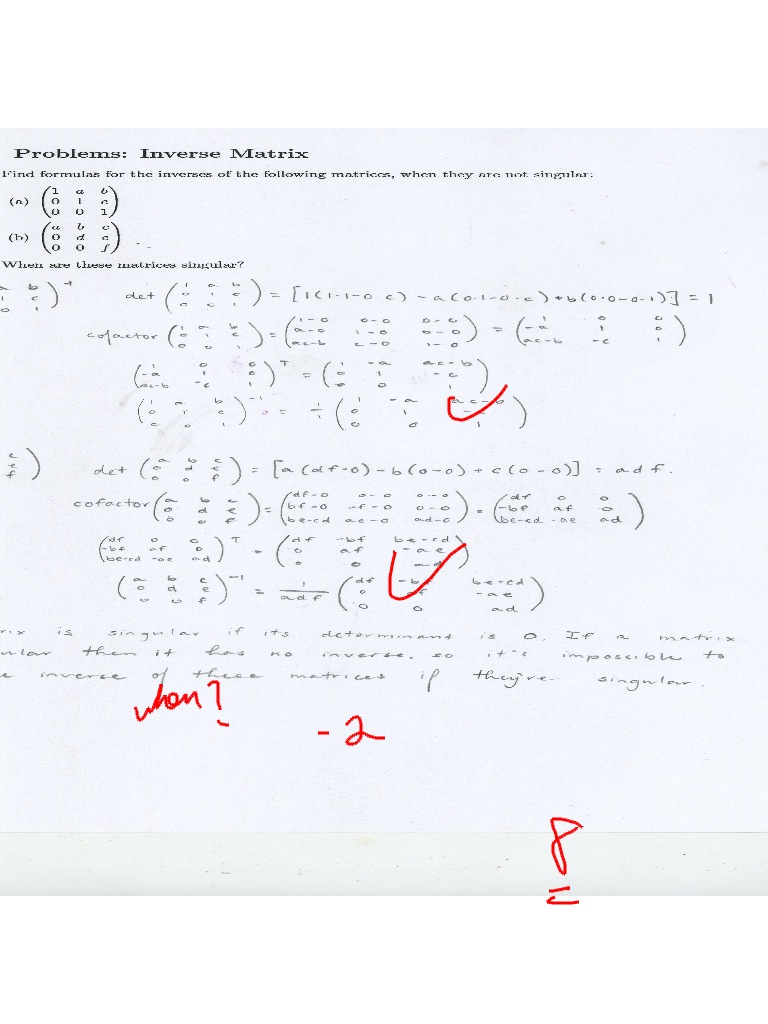 Problems: Inverse Matrix
Find formulas for the inverses of the following matrices, when they are not singular:
(a) (1 a b
0 1 c
0 0 1)
(b) (a b c
0 d e
0 0 f)
When are these matrices singular?
a b
1 c
0 1 )⁻¹ det (1 a b
0 1 c
0 0 1) = [1(1·1-0·c) - a(0·1-0·c) + b(0·0-0·1)] = 1
cofactor (1 a b
0 1 c
0 0 1) = (1-0 0-0 0-0
a-0 1-0 0-0
ac-b c-0 1-0) = (1 0 0
-a 1 0
ac-b -c 1)
(1 0 0
-a 1 0
ac-b -c 1)ᵀ = (1 -a ac-b
0 1 -c
0 0 1)
(1 a b
0 1 c
0 0 1)⁻¹ = 1/1 (1 -a ac-b
0 1 -c
0 0 1)
c
e
f ) det (a b c
0 d e
0 0 f) = [a(df-0) - b(0-0) + c(0-0)] = adf.
cofactor (a b c
0 d e
0 0 f) = (df-0 0-0 0-0
bf-0 af-0 0-0
be-cd ae-0 ad-0) = (df 0 0
-bf af 0
be-cd -ae ad)
(df 0 0
-bf af 0
be-cd -ae ad)ᵀ = (df -bf be-cd
0 af -ae
0 0 ad)
(a b c
0 d e
0 0 f)⁻¹ = 1/adf (df -bf be-cd
0 af -ae
0 0 ad)
rix is singular if its determinant is 0. If a matrix
ular then it has no inverse, so it's impossible to
e inverse of these matrices if they're singular.
when?
-2
8